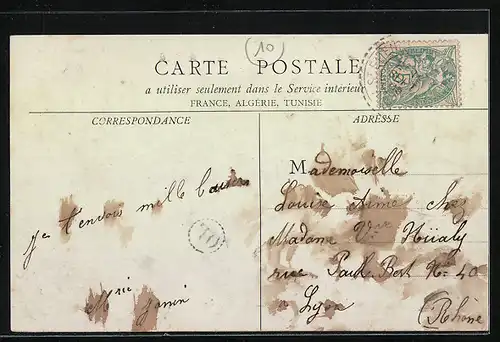 (10)
CARTE POSTALE
a utiliser seulement dans le Service intérieur
FRANCE, ALGÉRIE, TUNISIE
CORRESPONDANCE
ADRESSE
Je t'envoie mille baisers
Mademoiselle
Louise Aime chez
Madame Vve
rue Paul Bert No 40
a Lyon
(Rhône